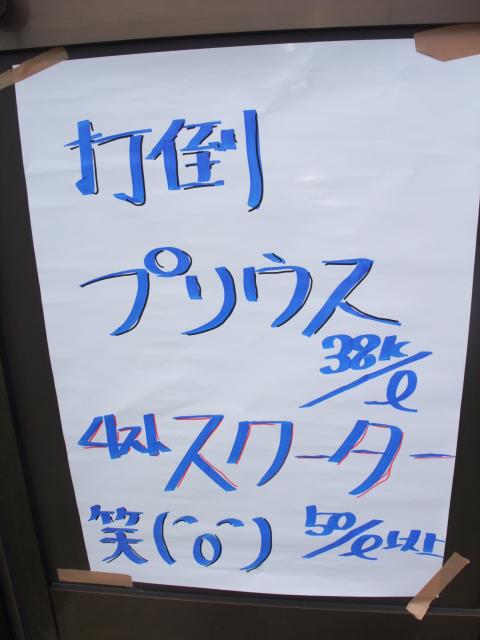 打倒
プリウス
38k/ℓ
4スト スクーター
笑(^o^) 50/ℓ以上